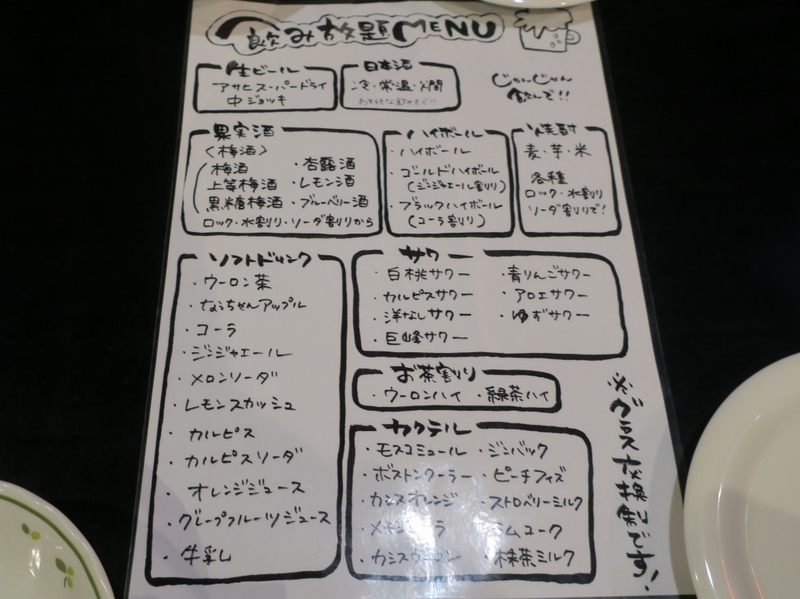 飲み放題MENU
生ビール
アサヒスーパードライ
中ジョッキ
日本酒
冷・常温・燗
じゃんじゃん
飲んで!!
果実酒
<梅酒>
梅酒
上等梅酒
黒糖梅酒
・杏露酒
・レモン酒
・ブルーベリー酒
ロック・水割り・ソーダ割りから
ハイボール
・ハイボール
・ゴールドハイボール
(ジンジャエール割り)
・ブラックハイボール
(コーラ割り)
焼酎
麦・芋・米
各種
ロック・水割り
ソーダ割りで!
ソフトドリンク
・ウーロン茶
・なっちゃんアップル
・コーラ
・ジンジャエール
・メロンソーダ
・レモンスカッシュ
・カルピス
・カルピスソーダ
・オレンジジュース
・グレープフルーツジュース
・牛乳
サワー
・白桃サワー
・カルピスサワー
・洋なしサワー
・巨峰サワー
・青りんごサワー
・アロエサワー
・ゆずサワー
お茶割り
・ウーロンハイ ・緑茶ハイ
カクテル
・モスコミュール
・ボストンクーラー
・カシスオレンジ
・カシスウーロン
・ジンバック
・ピーチフィズ
・ストロベリーミルク
・ラムコーク
・抹茶ミルク
※グラス交換制です!